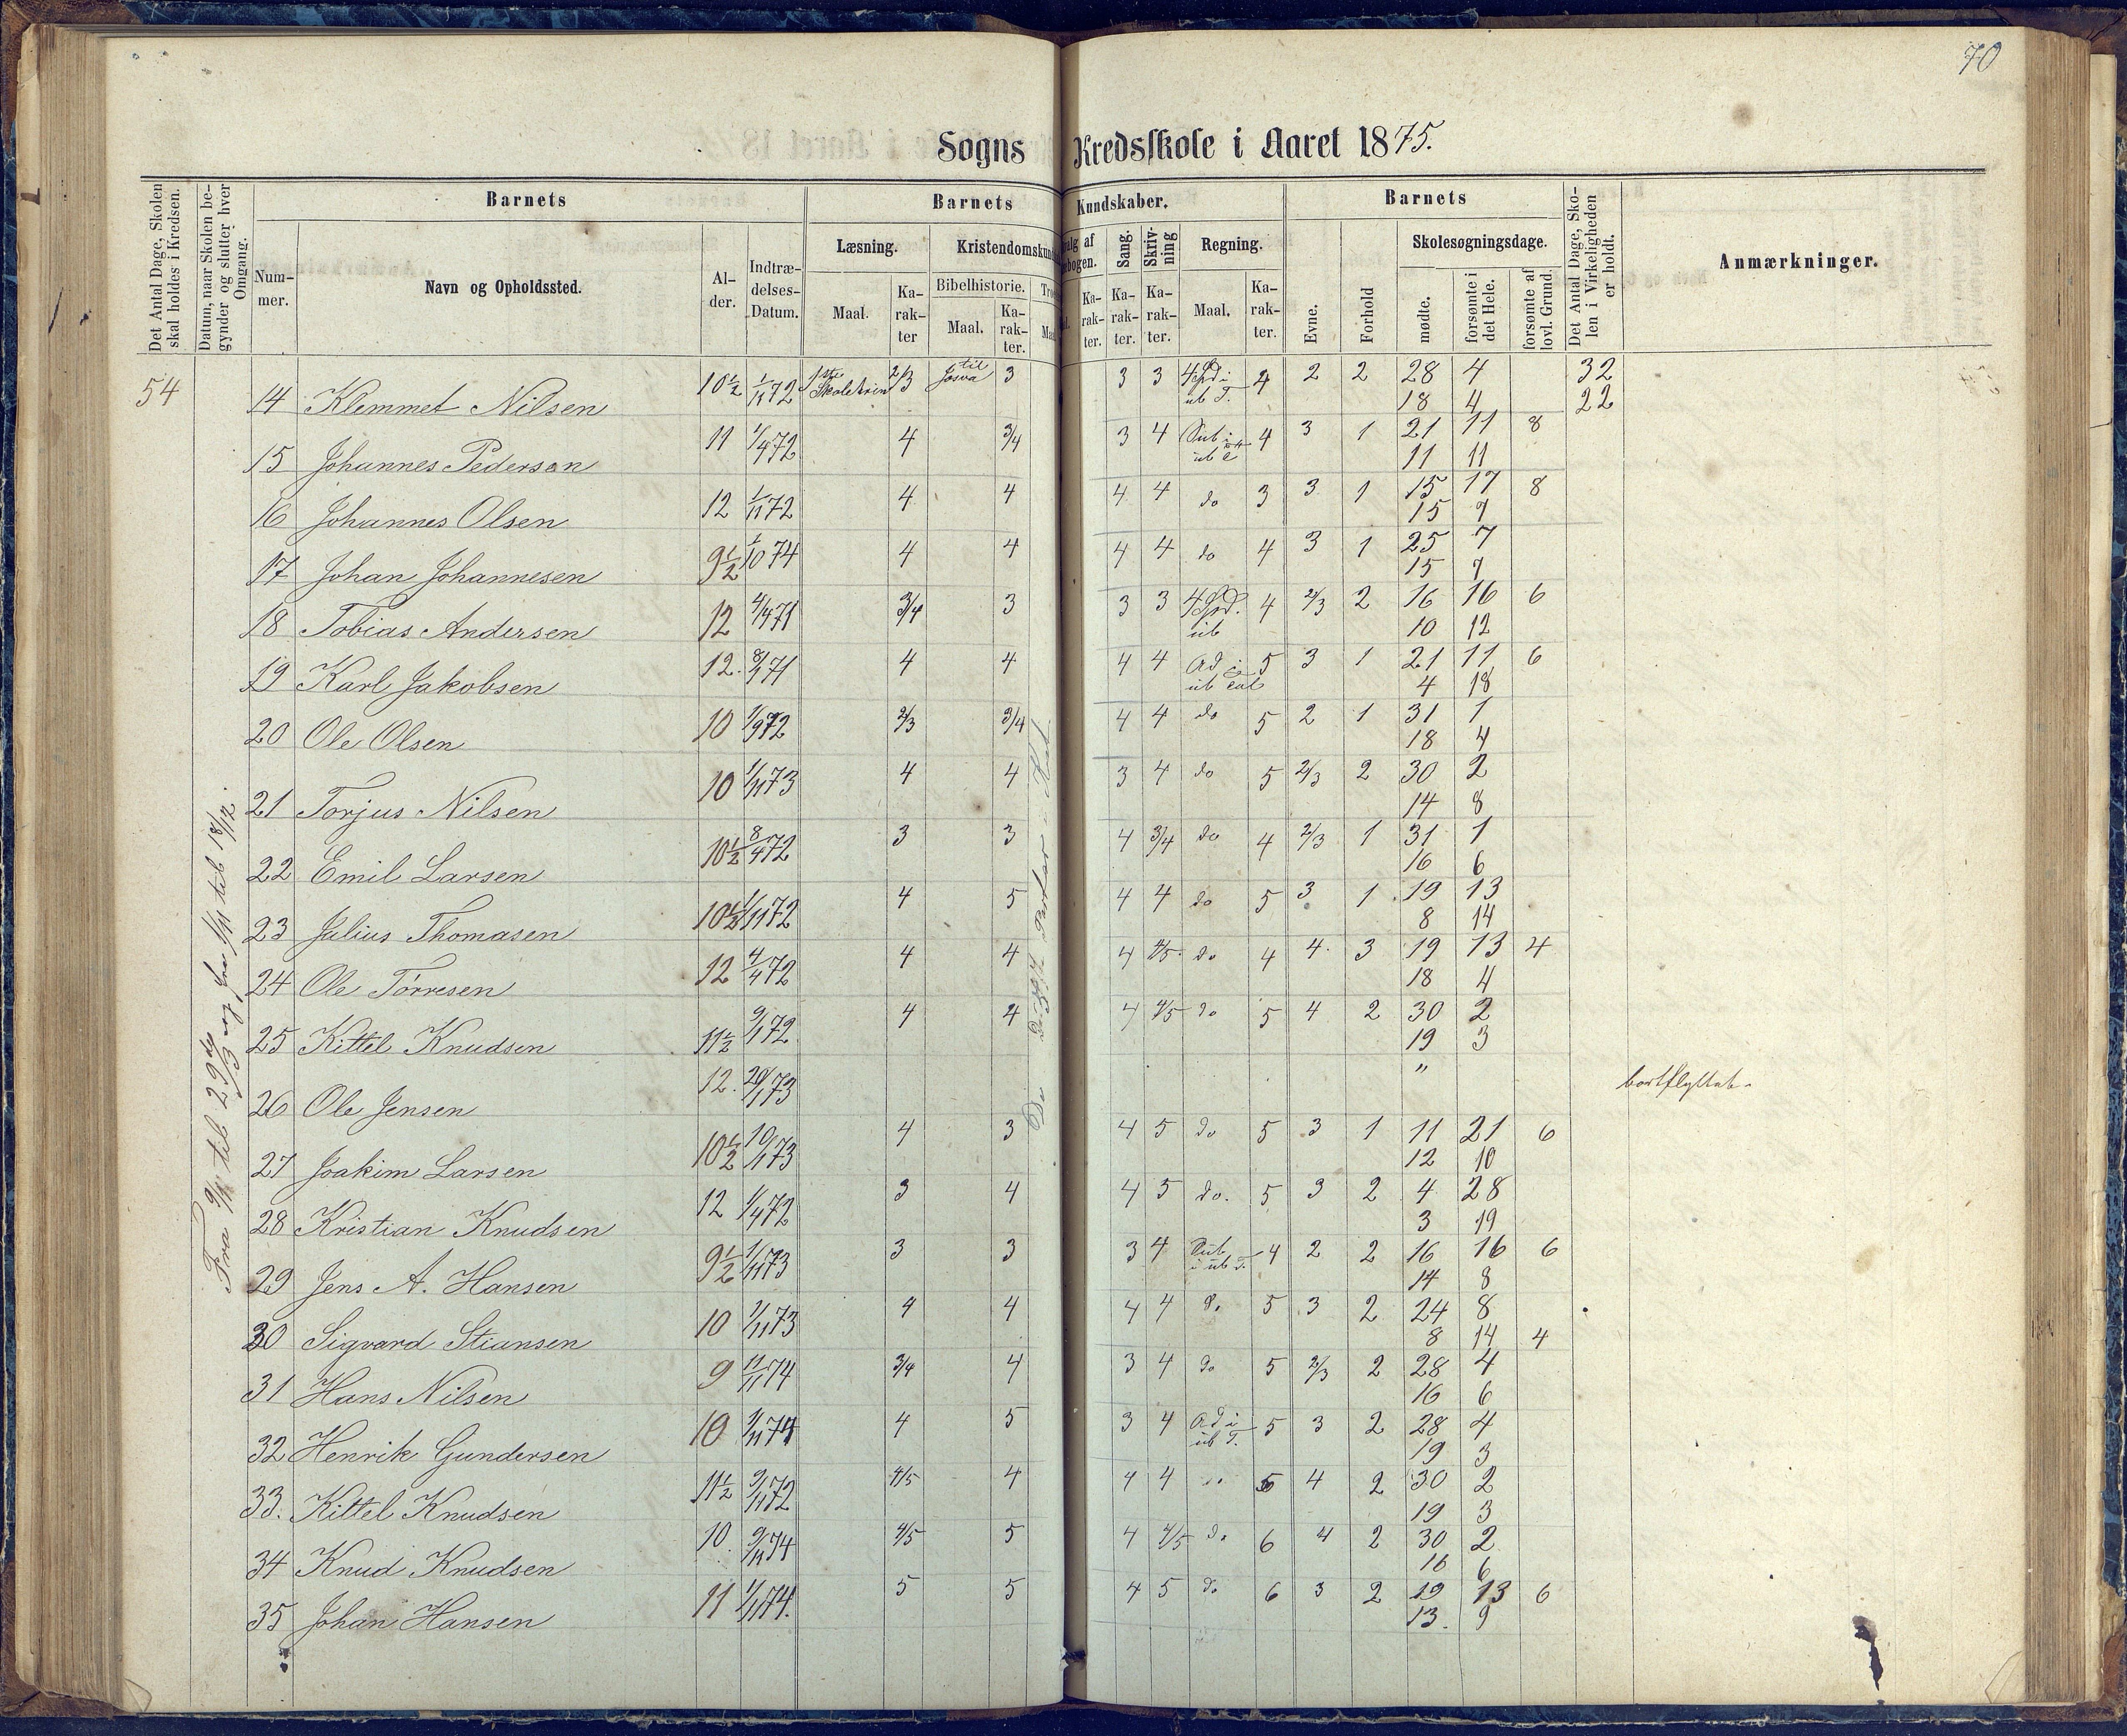 70
Sogns Kredsskole i Aaret 1875.
Det Antal Dage, Skolen skal holdes i Kredsen.
Datum, naar Skolen begynder og slutter hver Omgang.
Barnets
Nummer.
Navn og Opholdssted.
Alder.
Indtrædelses-Datum.
Barnets Kundskaber.
Læsning.
Maal.
Karakter
Bibelhistorie.
Maal.
Karakter.
Sang.
Karakter.
Skrivning
Karakter.
Regning.
Maal.
Karakter.
Barnets
Evne.
Forhold
Skolesøgningsdage.
mødte.
forsømte i det Hele.
forsømte af lovl. Grund.
Det Antal Dage, Skolen i Virkeligheden er holdt.
Anmærkninger.
54
14 Klemmet Nilsen 10½ 1/11 72 1ste Skoletrin 2/3 til Josva 3 3 3 4 2 2 28 4 32
18 4 22
15 Johannes Pedersen 11 1/4 72 4 3/4 3 4 4 3 1 21 11 8
11 11
16 Johannes Olsen 12 1/11 72 4 4 4 4 do 3 3 1 15 17 8
15 7
17 Johan Johannesen 9½ 1/10 74 4 4 4 4 do 4 3 1 25 7
15 7
18 Tobias Andersen 12 4/4 71 3/4 3 3 3 4 2/3 2 16 16 6
10 12
19 Karl Jakobsen 12. 8/1 71 4 4 4 4 5 3 1 21 11 6
4 18
20 Ole Olsen 10 1/9 72 2/3 3/4 4 4 do 5 2 1 31 1
18 4
21 Torjus Nilsen 10 1/11 73 4 4 3 4 do 5 2/3 2 30 2
14 8
22 Emil Larsen 10½ 8/4 72 3 3 4 3/4 do 4 2/3 1 31 1
16 6
23 Julius Thomasen 10½ 1/11 72 4 5 4 4 do 5 3 1 19 13
8 14
24 Ole Törresen 12 4/4 72 4 4 4 4/5 do 4 4 3 19 13 4
18 4
25 Kittel Knudsen 11½ 9/1 72 4 4 4 4/5 do 5 4 2 30 2
19 3
26 Ole Jensen 12. 20/1 73 " bortflyttet
27 Joakim Larsen 10½ 10/1 73 4 3 4 5 do 5 3 1 11 21 6
12 10
28 Kristian Knudsen 12 1/4 72 3 4 4 5 do. 5 3 2 4 28
3 19
29 Jens A. Hansen 9½ 1/11 73 3 3 3 4 4 2 2 16 16 6
14 8
30 Sigvard Stiansen 10 1/11 73 4 4 4 4 5 3 2 24 8
8 14 4
31 Hans Nilsen 9 11/11 74 3/4 4 3 4 do 5 2/3 2 28 4
16 6
32 Henrik Gundersen 10 1/11 74 4 5 3 4 5 3 2 28 4
19 3
33. Kittel Knudsen 11½ 9/11 72 4/5 4 4 4 5 4 2 30 2
19 3
34 Knud Knudsen 10 9/11 74 4/5 5 4 4/5 do 6 4 2 30 2
16 6
35 Johan Hansen 11 1/1 74. 5 5 4 5 do 6 3 2 19 13 6
13. 9
Fra 9/1 til 23de/3 og fra 1/11 til 18/12.